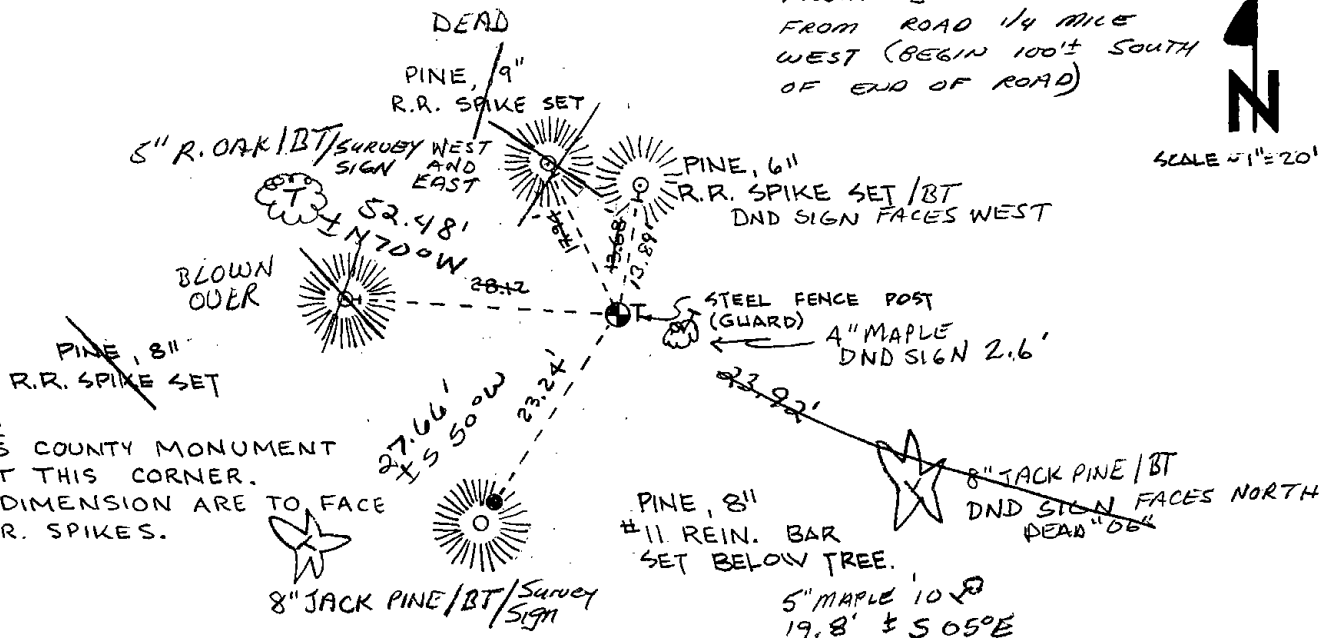 DEAD
FROM ROAD 1/4 MILE
WEST (BEGIN 100'± SOUTH
OF END OF ROAD)
N
SCALE ~ 1"=20'
PINE, 9"
R.R. SPIKE SET
5" R. OAK/BT/SURVEY WEST
SIGN AND
EAST
T
PINE, 6"
R.R. SPIKE SET /BT
DND SIGN FACES WEST
52.48'
± N70°W
13.68'
13.89'
BLOWN
OVER
28.12
T
STEEL FENCE POST
(GUARD)
4" MAPLE
DND SIGN 2.6'
PINE, 8"
R.R. SPIKE SET
27.66'
± S 50°W
23.24'
23.92'
S COUNTY MONUMENT
T THIS CORNER.
DIMENSION ARE TO FACE
R. SPIKES.
8" JACK PINE/BT
DND SIGN FACES NORTH
DEAD "06"
PINE, 8"
#11 REIN. BAR
SET BELOW TREE.
8" JACK PINE/BT/Survey
Sign
5" MAPLE '10
19.8' ± S 05°E